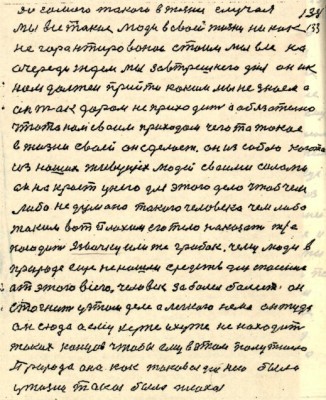 до самого такого в жизни случая 134
мы все такие люди в своей жизни никак 133
не гарантированы стоим мы все на
очереди ждем мы завтрешнего дня он к
нам должен прийти каким мы не знаем а
он так даром не приходит а обязательно
что то нам своим приходом чего то такое
в жизни своей он сделает, он из собою кого то
из наших живущих людей своими силами
он на кроет у него для этого дело чтобы чем
либо не думано такого человека чем либо
таким вот плохим стало наказать
посадит язвочку или же грибок, чему люди в
природе еще не нашли средств для
от этого всего, человек заболел болеет он
стогнит у этом деле а легкого нема он туда
он сюда а ему хуже и хуже не находит
таких концов чтобы ему в этом получшело
Природа она как такова для нею была
у жизни такая была плохая